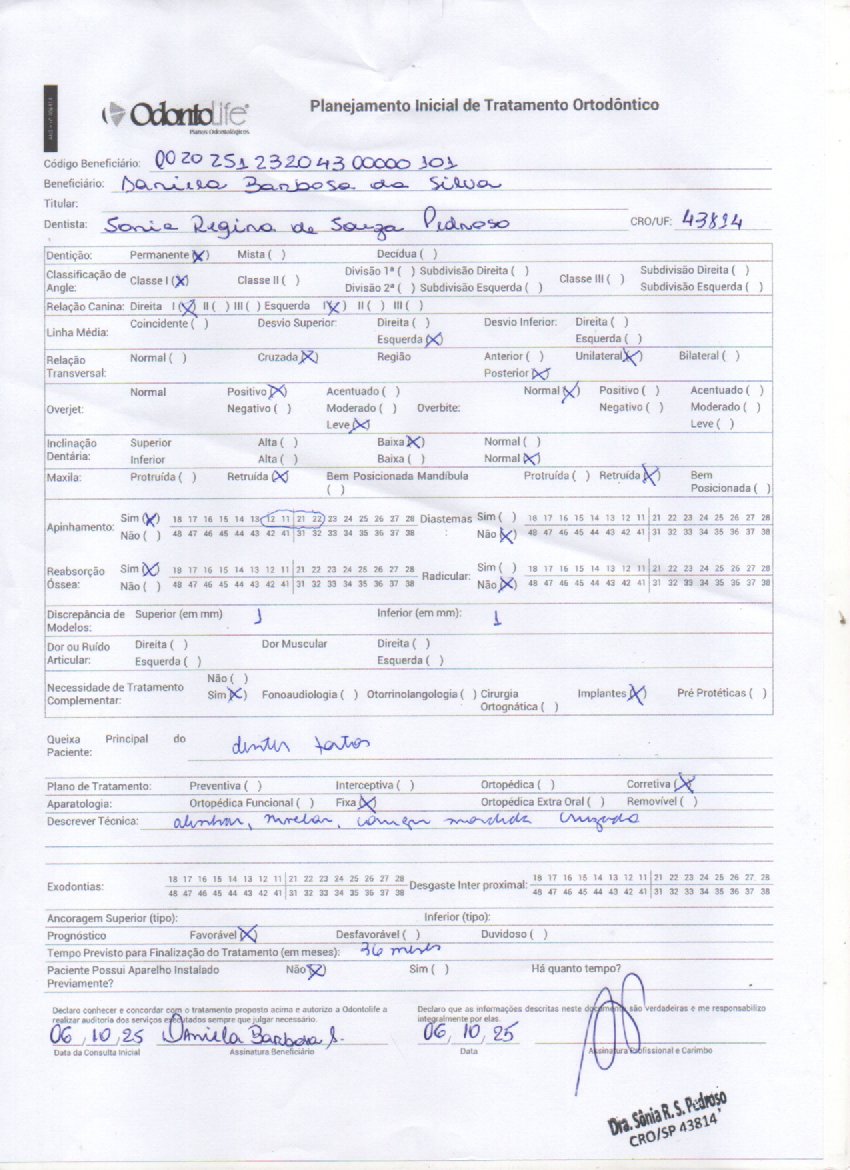 OdontoLife
Planos Odontológicos
Planejamento Inicial de Tratamento Ortodôntico
Código Beneficiário: 0020 251 23204300000 101
Beneficiário: Daniela Barbosa da Silva
Titular:
Dentista: Sonia Regina de Souza Pedroso CRO/UF: 43814
Dentição: Permanente (X) Mista ( ) Decídua ( )
Classificação de Angle: Classe I (X) Classe II ( ) Divisão 1ª ( ) Subdivisão Direita ( ) Classe III ( ) Subdivisão Direita ( )
Divisão 2ª ( ) Subdivisão Esquerda ( ) Subdivisão Esquerda ( )
Relação Canina: Direita I (X) II ( ) III ( ) Esquerda I (X) II ( ) III ( )
Linha Média: Coincidente ( ) Desvio Superior: Direita ( ) Desvio Inferior: Direita ( )
Esquerda (X) Esquerda ( )
Relação Transversal: Normal ( ) Cruzada (X) Região Anterior ( ) Unilateral (X) Bilateral ( )
Posterior (X)
Overjet: Normal Positivo (X) Acentuado ( ) Overbite: Normal (X) Positivo ( ) Acentuado ( )
Negativo ( ) Moderado ( ) Negativo ( ) Moderado ( )
Leve (X) Leve ( )
Inclinação Dentária: Superior Alta ( ) Baixa (X) Normal ( )
Inferior Alta ( ) Baixa ( ) Normal (X)
Maxila: Protruída ( ) Retruída (X) Bem Posicionada ( ) Mandíbula Protruída ( ) Retruída (X) Bem Posicionada ( )
Apinhamento: Sim (X) 18 17 16 15 14 13 12 11 21 22 23 24 25 26 27 28 Diastemas Sim ( ) 18 17 16 15 14 13 12 11 21 22 23 24 25 26 27 28
Não ( ) 48 47 46 45 44 43 42 41 31 32 33 34 35 36 37 38 Não (X) 48 47 46 45 44 43 42 41 31 32 33 34 35 36 37 38
Reabsorção Óssea: Sim (X) 18 17 16 15 14 13 12 11 21 22 23 24 25 26 27 28 Radicular: Sim ( ) 18 17 16 15 14 13 12 11 21 22 23 24 25 26 27 28
Não ( ) 48 47 46 45 44 43 42 41 31 32 33 34 35 36 37 38 Não (X) 48 47 46 45 44 43 42 41 31 32 33 34 35 36 37 38
Discrepância de Modelos: Superior (em mm) 1 Inferior (em mm): 1
Dor ou Ruído Articular: Direita ( ) Dor Muscular Direita ( )
Esquerda ( ) Esquerda ( )
Necessidade de Tratamento Complementar: Não ( )
Sim (X) Fonoaudiologia ( ) Otorrinolangologia ( ) Cirurgia Ortognática ( ) Implantes (X) Pré Protéticas ( )
Queixa Principal do Paciente: dentes tortos
Plano de Tratamento: Preventiva ( ) Interceptiva ( ) Ortopédica ( ) Corretiva (X)
Aparatologia: Ortopédica Funcional ( ) Fixa (X) Ortopédica Extra Oral ( ) Removível ( )
Descrever Técnica: alinhar, nivelar, corrigir mordida cruzada
Exodontias: 18 17 16 15 14 13 12 11 21 22 23 24 25 26 27 28 Desgaste Inter proximal: 18 17 16 15 14 13 12 11 21 22 23 24 25 26 27 28
48 47 46 45 44 43 42 41 31 32 33 34 35 36 37 38 48 47 46 45 44 43 42 41 31 32 33 34 35 36 37 38
Ancoragem Superior (tipo): Inferior (tipo):
Prognóstico Favorável (X) Desfavorável ( ) Duvidoso ( )
Tempo Previsto para Finalização do Tratamento (em meses): 36 meses
Paciente Possui Aparelho Instalado Previamente? Não (X) Sim ( ) Há quanto tempo?
Declaro conhecer e concordar com o tratamento proposto acima e autorizo a Odontolife a realizar auditoria dos serviços executados sempre que julgar necessário.
Declaro que as informações descritas neste documento são verdadeiras e me responsabilizo integralmente por elas.
06,10,25 Daniela Barbosa S. 06,10,25
Data da Consulta Inicial Assinatura Beneficiário Data Assinatura Profissional e Carimbo
Dra. Sônia R. S. Pedroso
CRO/SP 43814